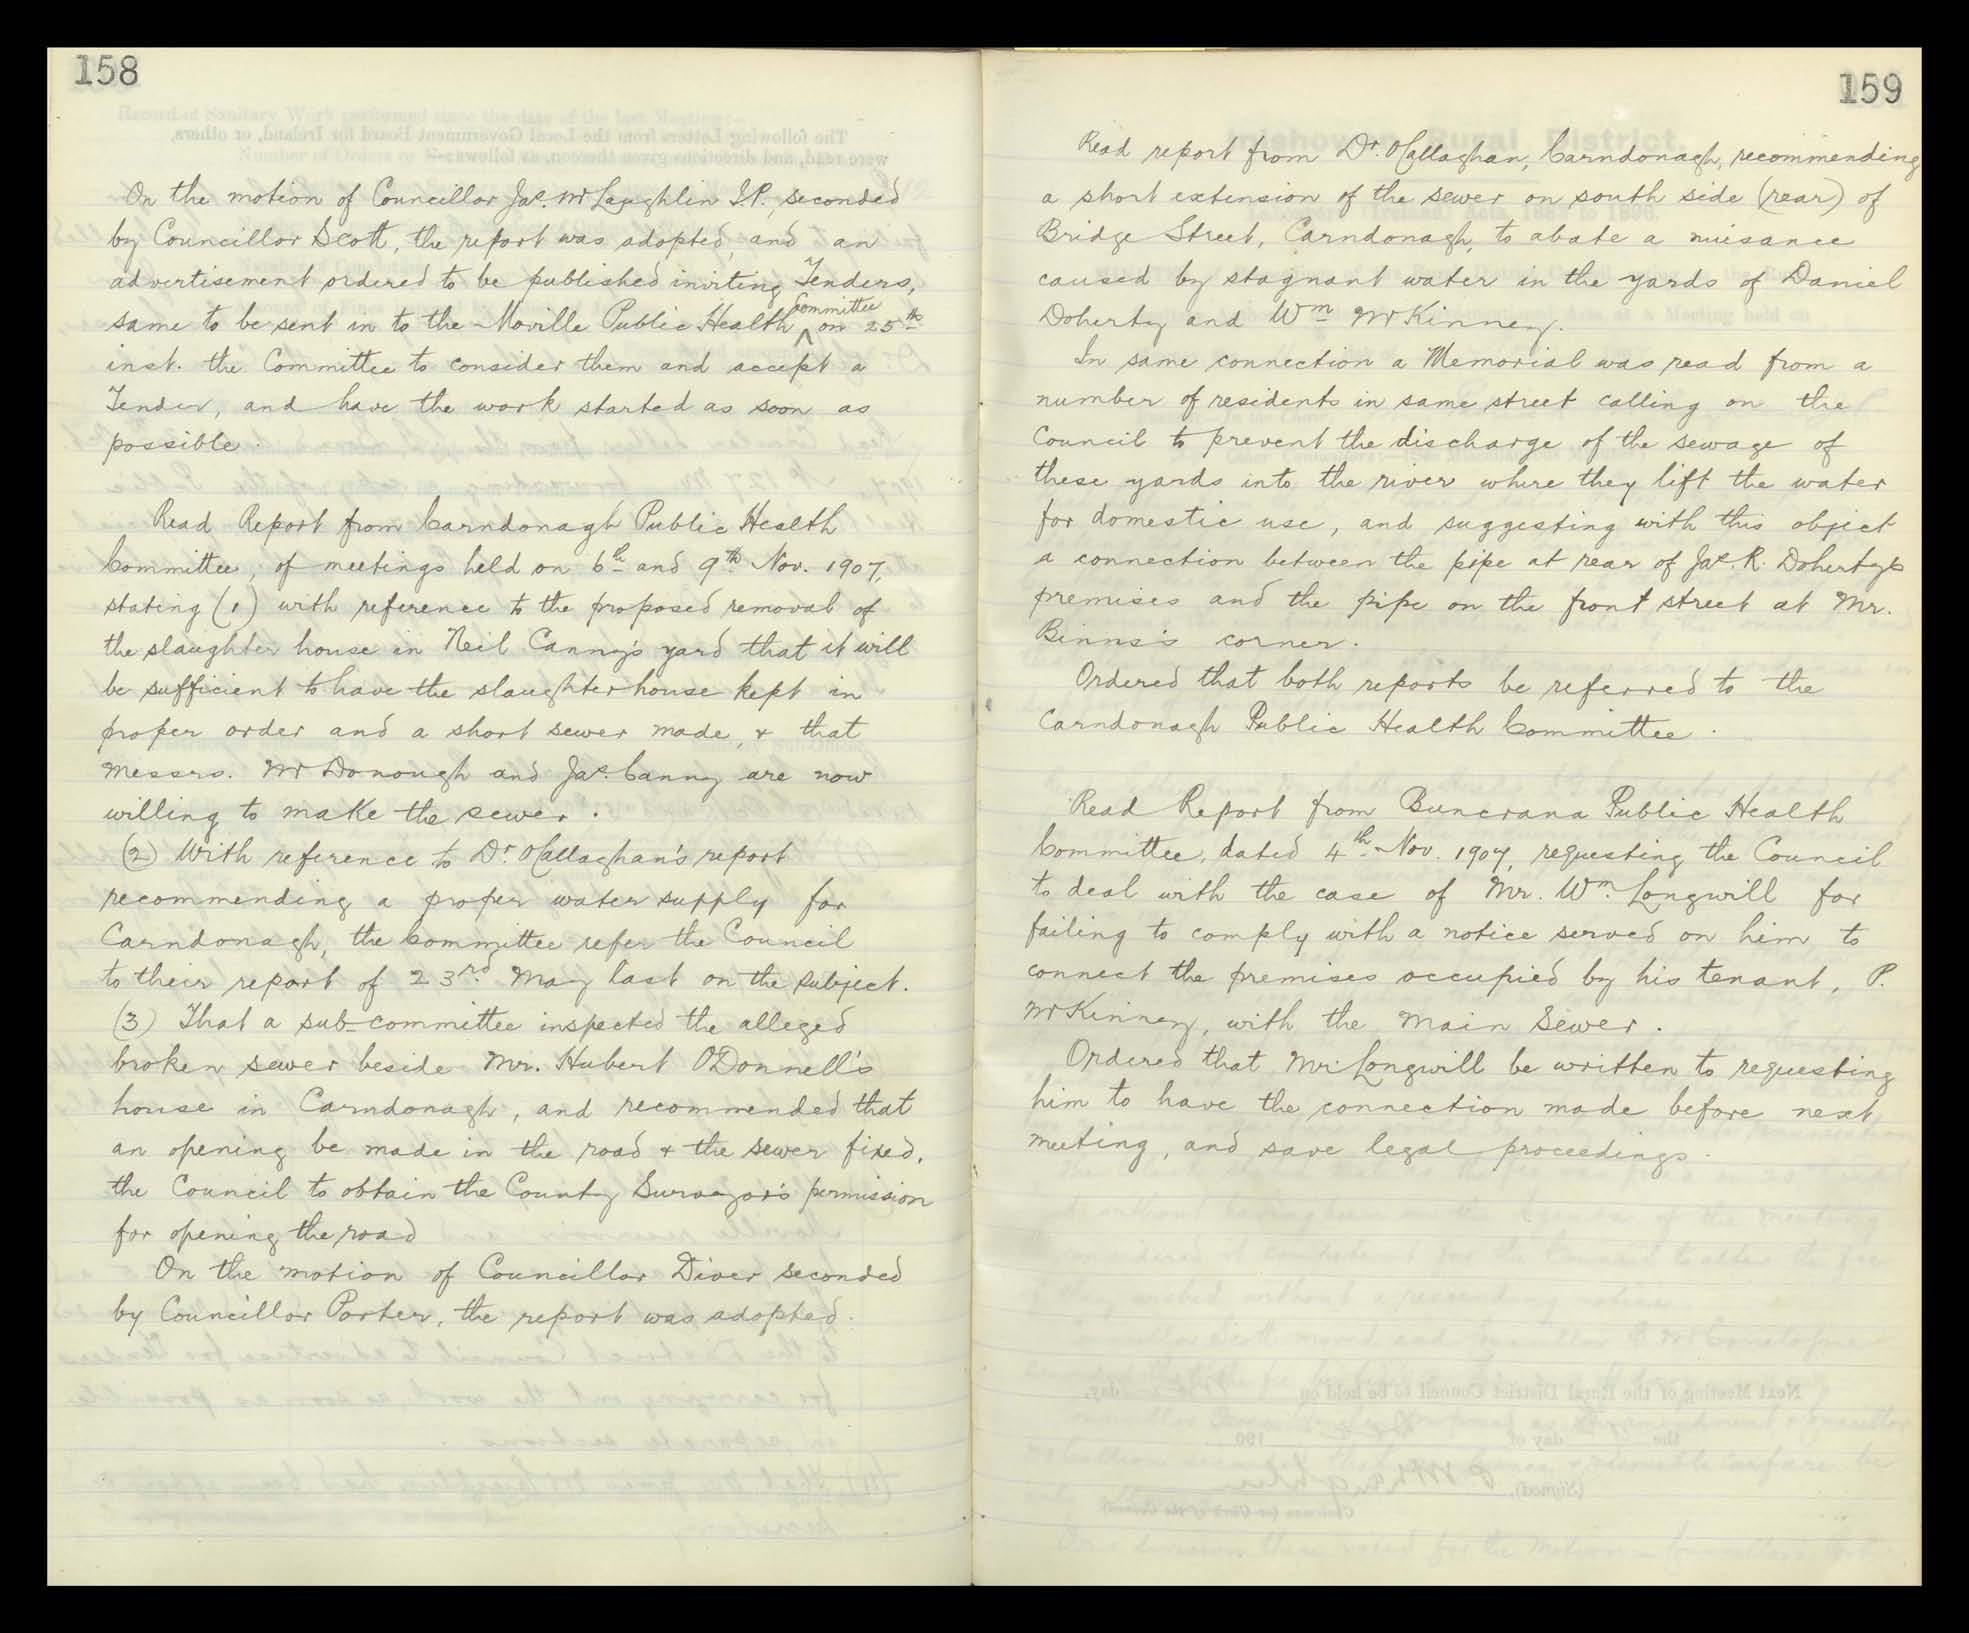 158
On the motion of Councillor Jas. McLaughlin J.P., seconded
by Councillor Scott, the report was adopted, and an
advertisement ordered to be published inviting Tenders,
same to be sent in to the Moville Public Health Committee on 25th
inst. the Committee to consider them and accept a
Tender, and have the work started as soon as
possible.
Read Report from Carndonagh Public Health
Committee, of meetings held on 6th and 9th Nov. 1907,
stating (1) with reference to the proposed removal of
the slaughter house in Neil Canny's yard that it will
be sufficient to have the slaughterhouse kept in
proper order and a short sewer made, & that
Messrs. McDonough and Jas. Canny are now
willing to make the sewer.
(2) With reference to Dr. O'Callaghan's report
recommending a proper water supply for
Carndonagh, the Committee refer the Council
to their report of 23rd May last on the subject.
(3) That a sub-committee inspected the alleged
broken sewer beside Mr. Hubert O'Donnell's
house in Carndonagh, and recommended that
an opening be made in the road & the sewer fixed,
the Council to obtain the County Surveyor's permission
for opening the road
On the motion of Councillor Diver seconded
by Councillor Porter, the report was adopted.
159
Read report from Dr. O'Callaghan, Carndonagh, recommending
a short extension of the sewer on south side (rear) of
Bridge Street, Carndonagh, to abate a nuisance
caused by stagnant water in the yards of Daniel
Doherty and Wm McKinney.
In same connection a Memorial was read from a
number of residents in same street calling on the
Council to prevent the discharge of the sewage of
these yards into the river where they lift the water
for domestic use, and suggesting with this object
a connection between the pipe at rear of Jas. R. Doherty's
premises and the pipe on the front street at Mr.
Binns's corner.
Ordered that both reports be referred to the
Carndonagh Public Health Committee.
Read Report from Buncrana Public Health
Committee, dated 4th Nov. 1907, requesting the Council
to deal with the case of Mr. Wm. Longwill for
failing to comply with a notice served on him to
connect the premises occupied by his tenant, P.
McKinney, with the Main Sewer.
Ordered that Mr. Longwill be written to requesting
him to have the connection made before next
meeting, and save legal proceedings.